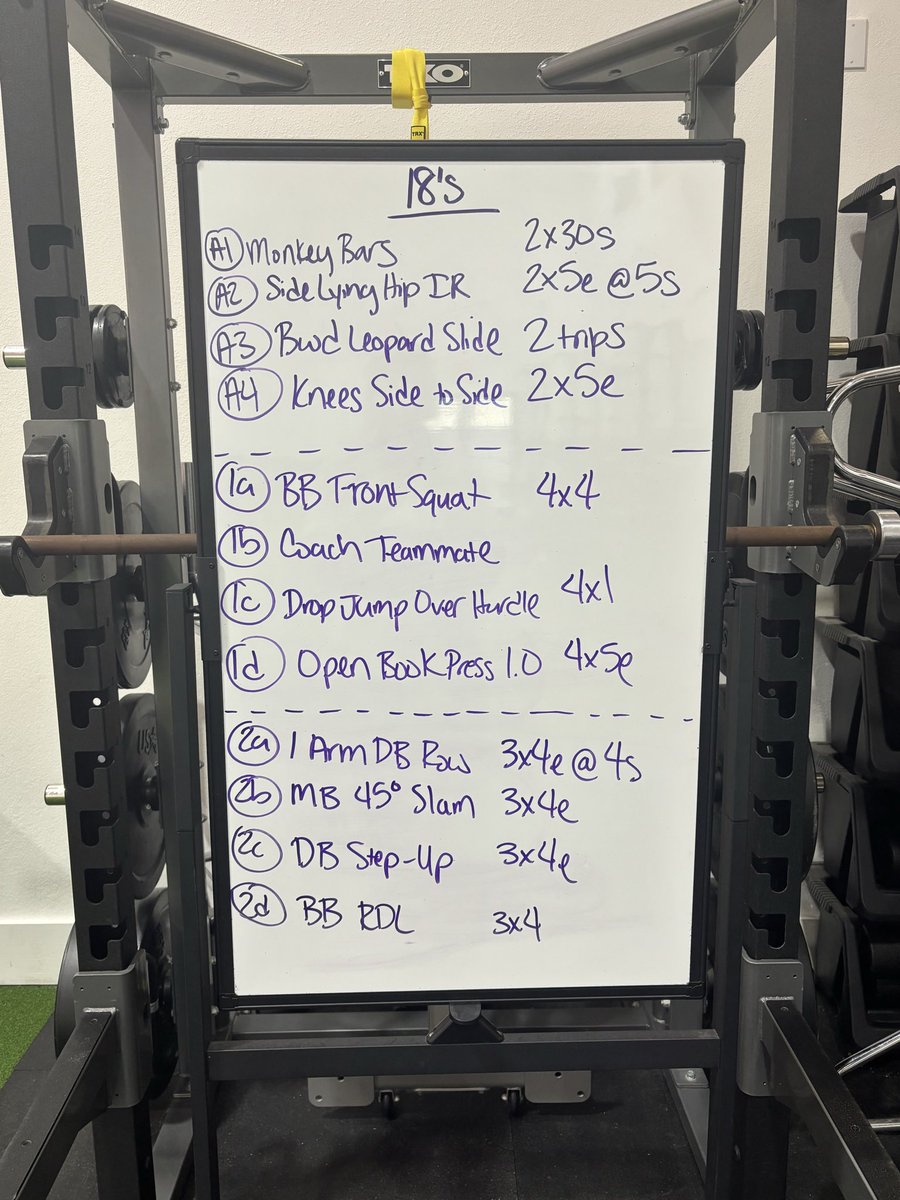 TKO
TRX
18's
A1 Monkey Bars 2x30s
A2 Side Lying Hip IR 2x5e @ 5s
A3 Bwd Leopard Slide 2 trips
A4 Knees Side to Side 2x5e
1a BB Front Squat 4x4
1b Coach Teammate
1c Drop Jump Over Hurdle 4x1
1d Open Book Press 1.0 4x5e
2a 1 Arm DB Row 3x4e @ 4s
2b MB 45° Slam 3x4e
2c DB Step-Up 3x4e
2d BB RDL 3x4